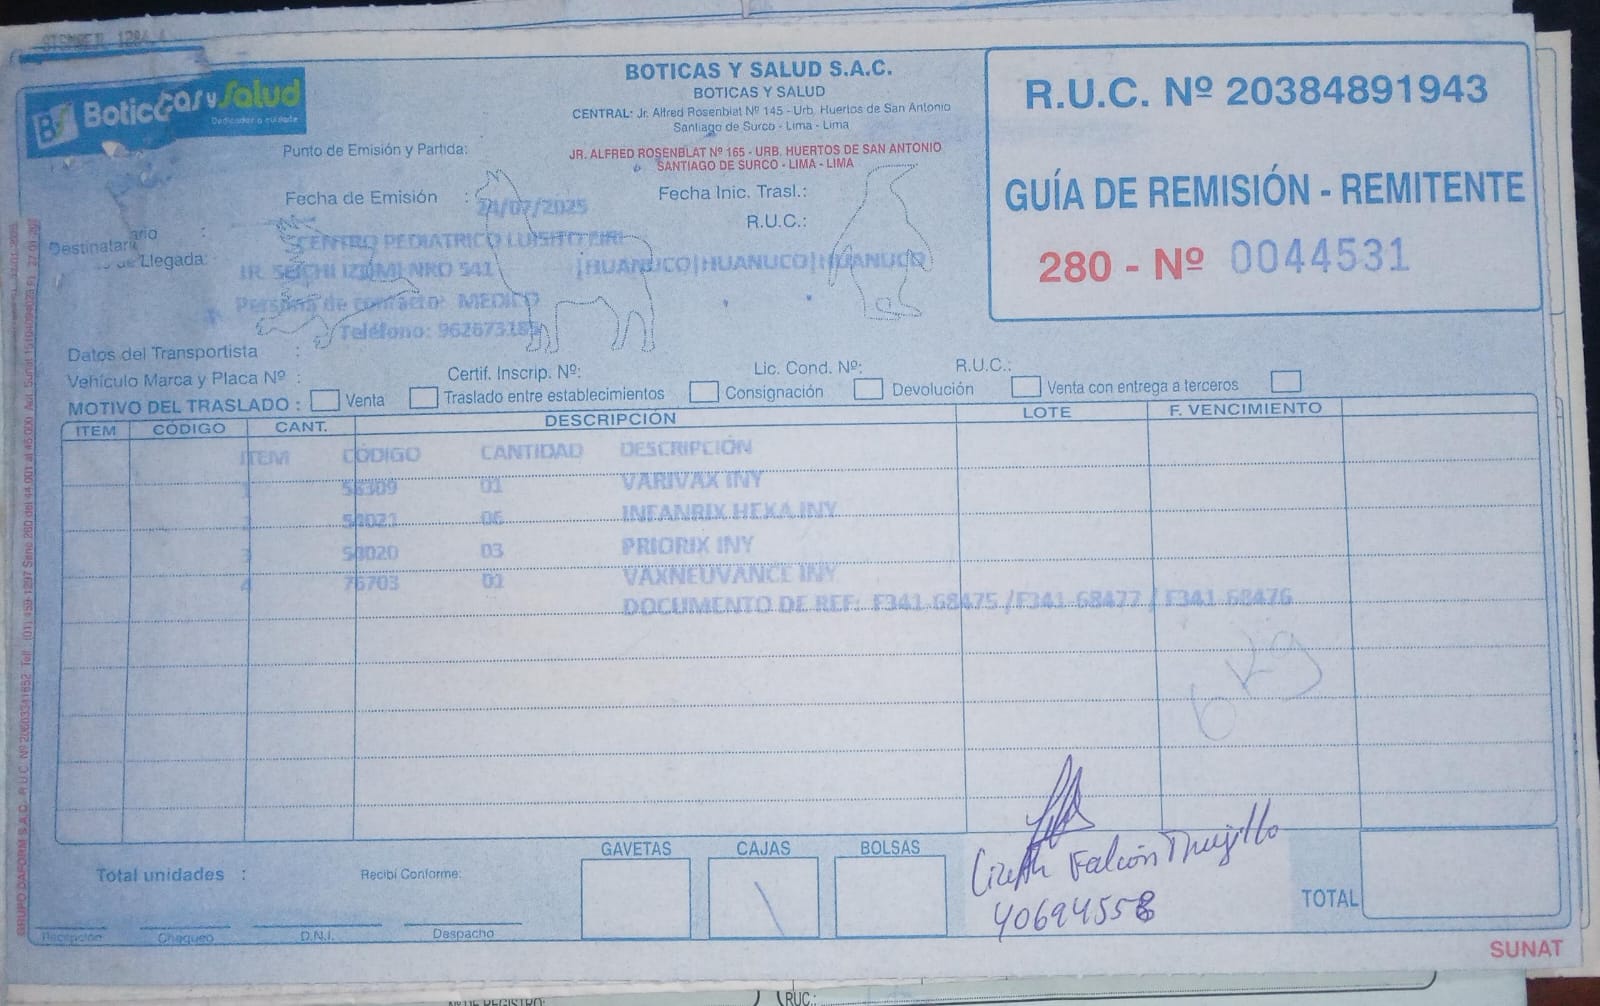 Boticas y Salud
Dedicados a cuidarte
BOTICAS Y SALUD S.A.C.
BOTICAS Y SALUD
CENTRAL: Jr. Alfred Rosenblat Nº 145 - Urb. Huertos de San Antonio
Santiago de Surco - Lima - Lima
Punto de Emisión y Partida:
JR. ALFRED ROSENBLAT Nº 165 - URB. HUERTOS DE SAN ANTONIO
SANTIAGO DE SURCO - LIMA - LIMA
R.U.C. Nº 20384891943
GUÍA DE REMISIÓN - REMITENTE
280 - Nº 0044531
Fecha de Emisión : 24/07/2025
Fecha Inic. Trasl.:
R.U.C.:
Destinatario : CENTRO PEDIATRICO LUISITO EIRL
de Llegada: JR. SEICHI IZUMI NRO 541 |HUANUCO|HUANUCO|HUANUCO
Persona de contacto: MEDICO
Teléfono:
Datos del Transportista :
Vehículo Marca y Placa Nº :
Certif. Inscrip. Nº:
Lic. Cond. Nº:
R.U.C.:
MOTIVO DEL TRASLADO : Venta Traslado entre establecimientos Consignación Devolución Venta con entrega a terceros
ITEM CÓDIGO CANT. DESCRIPCIÓN LOTE F. VENCIMIENTO
ITEM CÓDIGO CANTIDAD DESCRIPCIÓN
1 56309 01 VARIVAX INY
06 INFANRIX HEXA INY
3 50020 03 PRIORIX INY
4 76703 01 VAXNEUVANCE INY
DOCUMENTO DE REF: F341-68475 /F341-68477 / F341-68476
6 Kg
GAVETAS CAJAS BOLSAS
Total unidades :
Recibí Conforme:
Lizeth Falcón Trujillo
40694558
TOTAL
Recepción Chequeo D.N.I. Despacho
SUNAT
Nº DE REGISTRO:
RUC.: